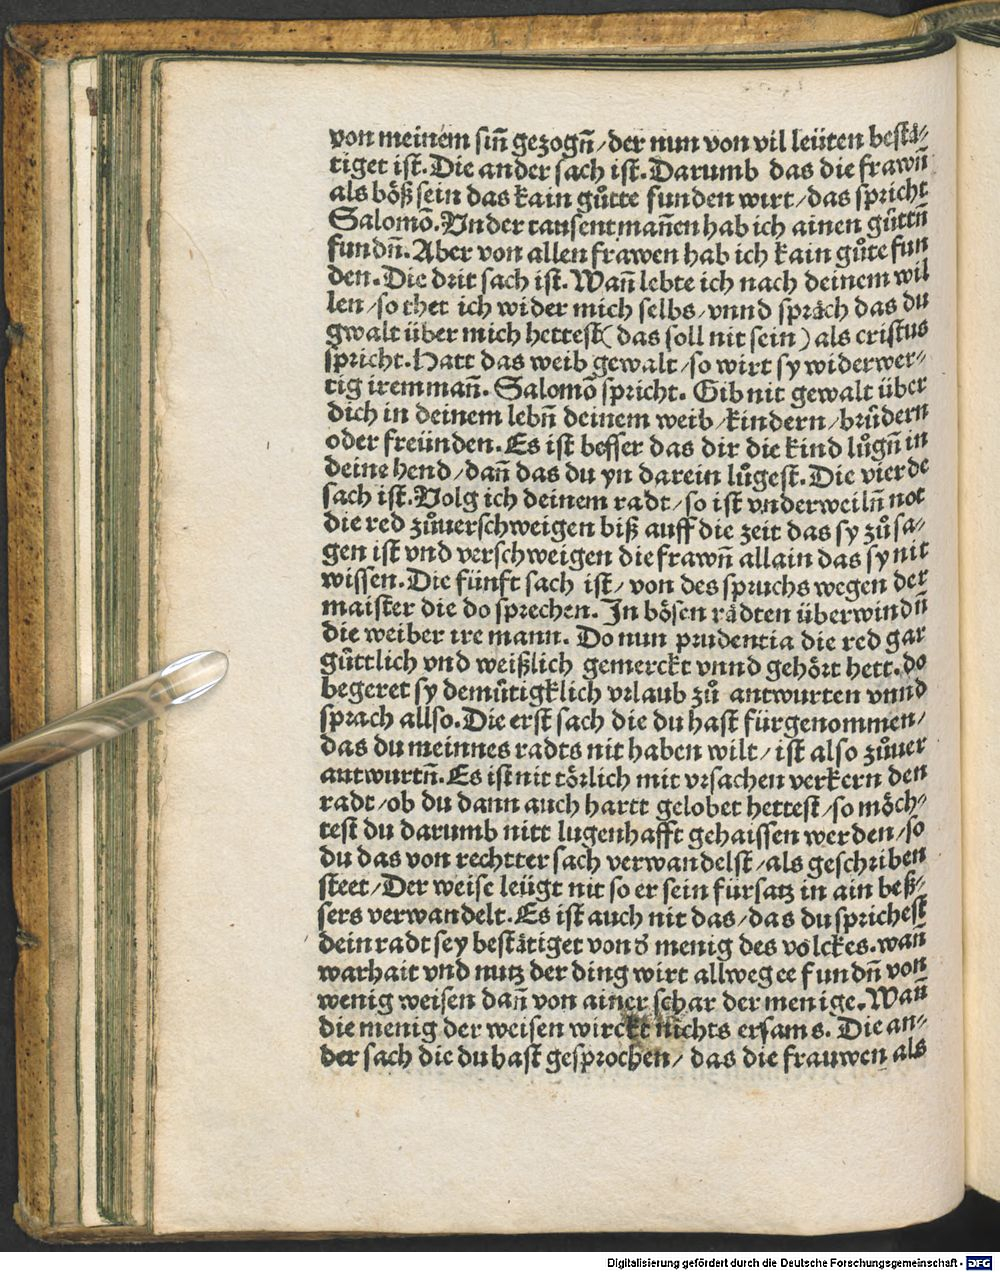 von meinem sin̄ gezogn̄/der nun von vil leüten bestå-
tiget ist. Die ander sach ist. Darumb das die frawn̄
als böß sein das kain gůtte funden wirt/das spricht
Salomō. Vnder tausent man̄en hab ich ainen gůttn̄
fundn̄. Aber von allen frawen hab ich kain gůte fun
den. Die drit sach ist. Wan̄ lebte ich nach deinem wil
len/so thet ich wider mich selbs/vnnd spräch das du
gwalt über mich hettest(das soll nit sein) als cristus
spricht. Hatt das weib gewalt/so wirt sy widerwer-
tig irem man̄. Salomō spricht. Gib nit gewalt über
dich in deinem lebn̄ deinem weib/kindern/brüdern
oder freünden. Es ist besser das dir die kind lůgn̄ in
deine hend/dan̄ das du yn darein lůgest. Die vierde
sach ist. Volg ich deinem radt/so ist vnderweiln̄ not
die red zůuerschweigen biß auff die zeit das sy zů sa-
gen ist vnd verschweigen die frawn̄ allain das sy nit
wissen. Die fünft sach ist/von des spruchs wegen der
maister die do sprechen. In bösen rädten überwindn̄
die weiber ire mann. Do nun prudentia die red gar
güttlich vnd weißlich gemerckt vnnd gehört hett. do
begeret sy demütigklich vrlaub zů antwurten vnnd
sprach allso. Die erst sach die du hast fürgenommen/
das du meinnes radts nit haben wilt/ist also zůuer
antwurtn̄. Es ist nit törlich mit vrsachen verkern den
radt/ob du dann auch hartt gelobet hettest/so möch-
test du darumb nitt lugenhafft gehaissen werden/so
du das von rechtter sach verwandelst/als geschriben
steet/Der weise leügt nit so er sein fürsatz in ain beß-
sers verwandelt. Es ist auch nit das/das du sprichest
dein radt sey bestätiget von d' menig des volckes. wan̄
warhait vnd nutz der ding wirt allweg ee fundn̄ von
wenig weisen dan̄ von ainer schar der menige. Wan̄
die menig der weisen wirckt nichts ersams. Die an-
der sach die du hast gesprochen/das die frauwen als
Digitalisierung gefördert durch die Deutsche Forschungsgemeinschaft - DFG